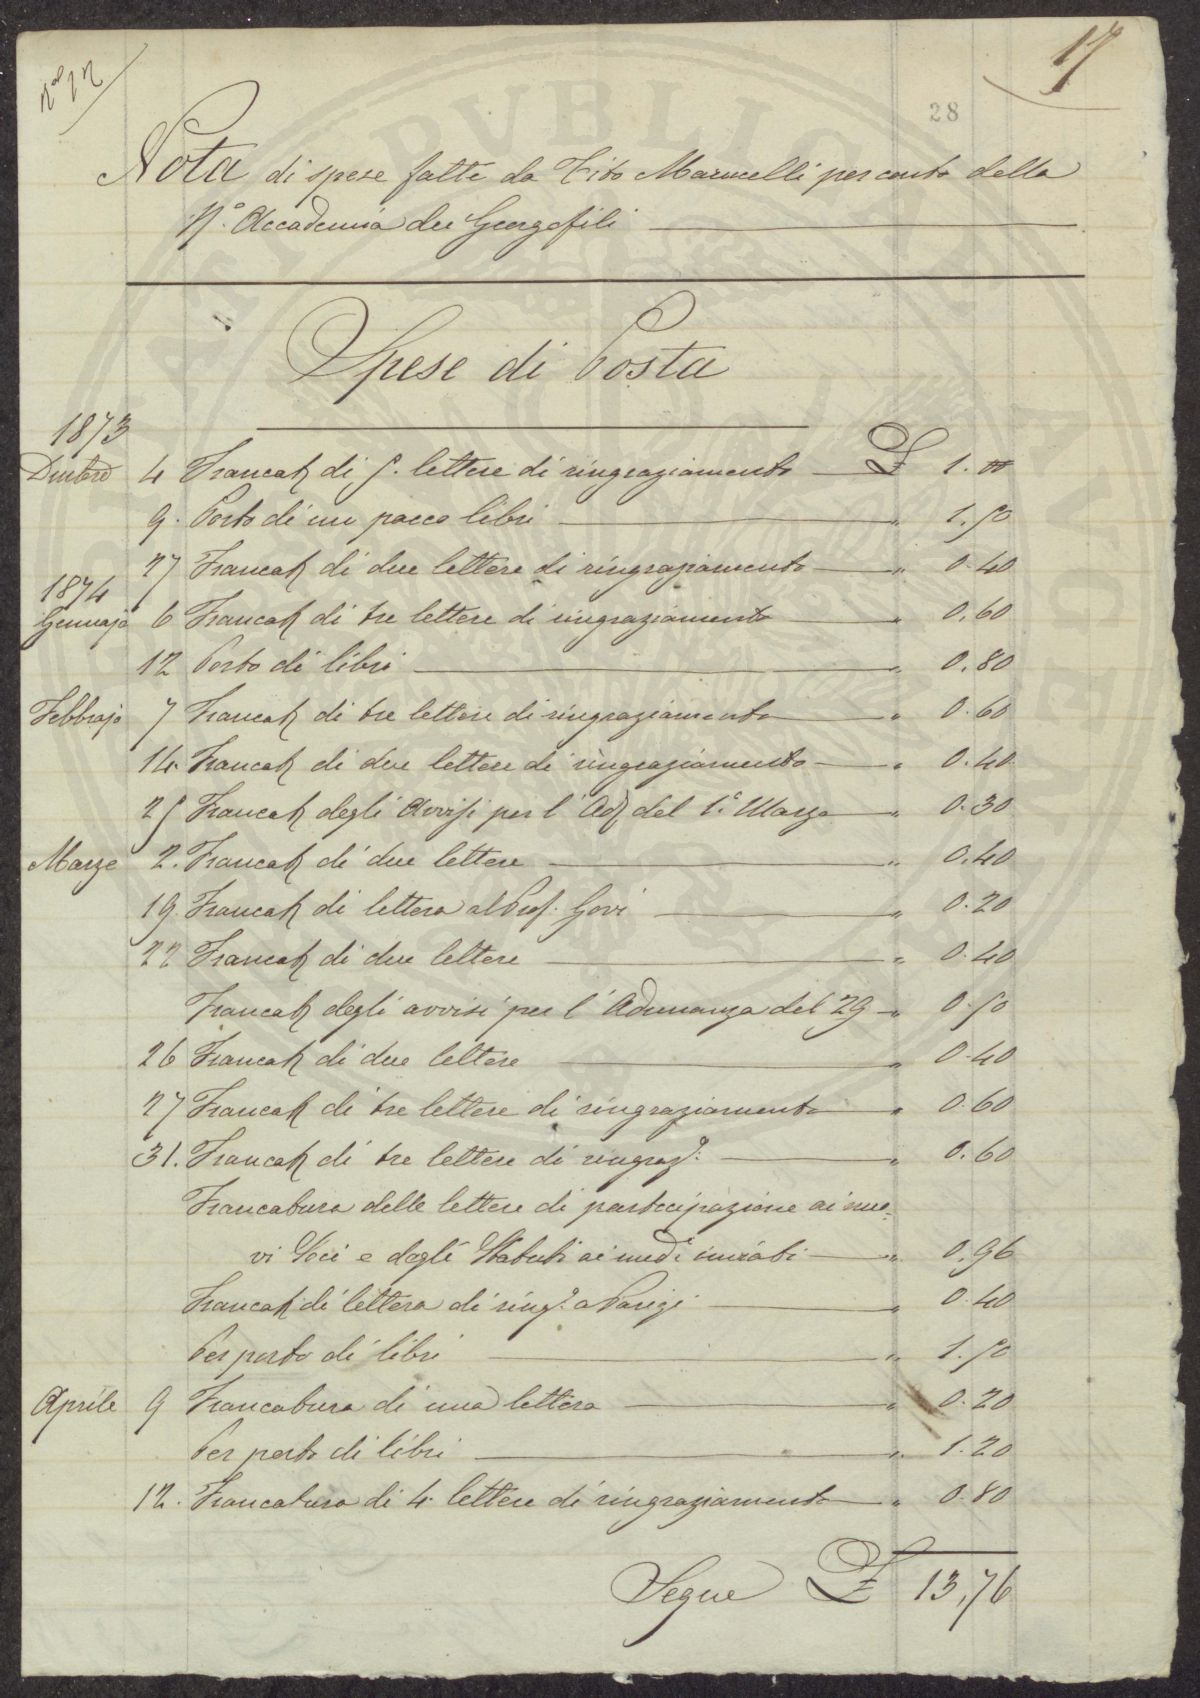 17
28
Nota di spese fatte da Tito Marucelli per conto della
R.ᵃ Accademia dei Georgofili
Spese di Posta
1873
Dicbre 4 Francat.ʳᵃ di 5. lettere di ringraziamento £ 1. 00
9. Porto di un pacco libri " 1. 50
27 Francat.ʳᵃ di due lettere di ringraziamento " 0. 40
1874
Gennajo 6 Francat.ʳᵃ di tre lettere di ringraziamento " 0. 60
12 Porto di libri " 0. 80
Febbrajo 7 Francat.ʳᵃ di tre lettere di ringraziamento " 0. 60
14. Francat.ʳᵃ di due lettere di ringraziamento " 0. 40
25 Francat.ʳᵃ degli Avvisi per l'Adᶻᵃ del 1.° Marzo " 0. 30
Marzo 2. Francat.ʳᵃ di due lettere " 0. 40
19 Francat.ʳᵃ di lettera al Prof. Govi " 0. 20
22 Francat.ʳᵃ di due lettere " 0. 40
Francat.ʳᵃ degli avvisi per l'Adunanza del 29 " 0. 50
26 Francat.ʳᵃ di due lettere " 0. 40
27 Francat.ʳᵃ di tre lettere di ringraziamento " 0. 60
31. Francat.ʳᵃ di tre lettere di ringraz.º " 0. 60
Francatura delle lettere di partecipazione ai nuo-
vi Soci e degli Statuti ai medⁱ inviati " 0. 96
Francat.ʳᵃ di lettera di ring.º a Parigi " 0. 40
Per porto di libri " 1. 50
Aprile 9 Francatura di una lettera " 0. 20
Per porto di libri " 1. 20
12. Francatura di 4. lettere di ringraziamento " 0. 80
Segue £ 13, 76